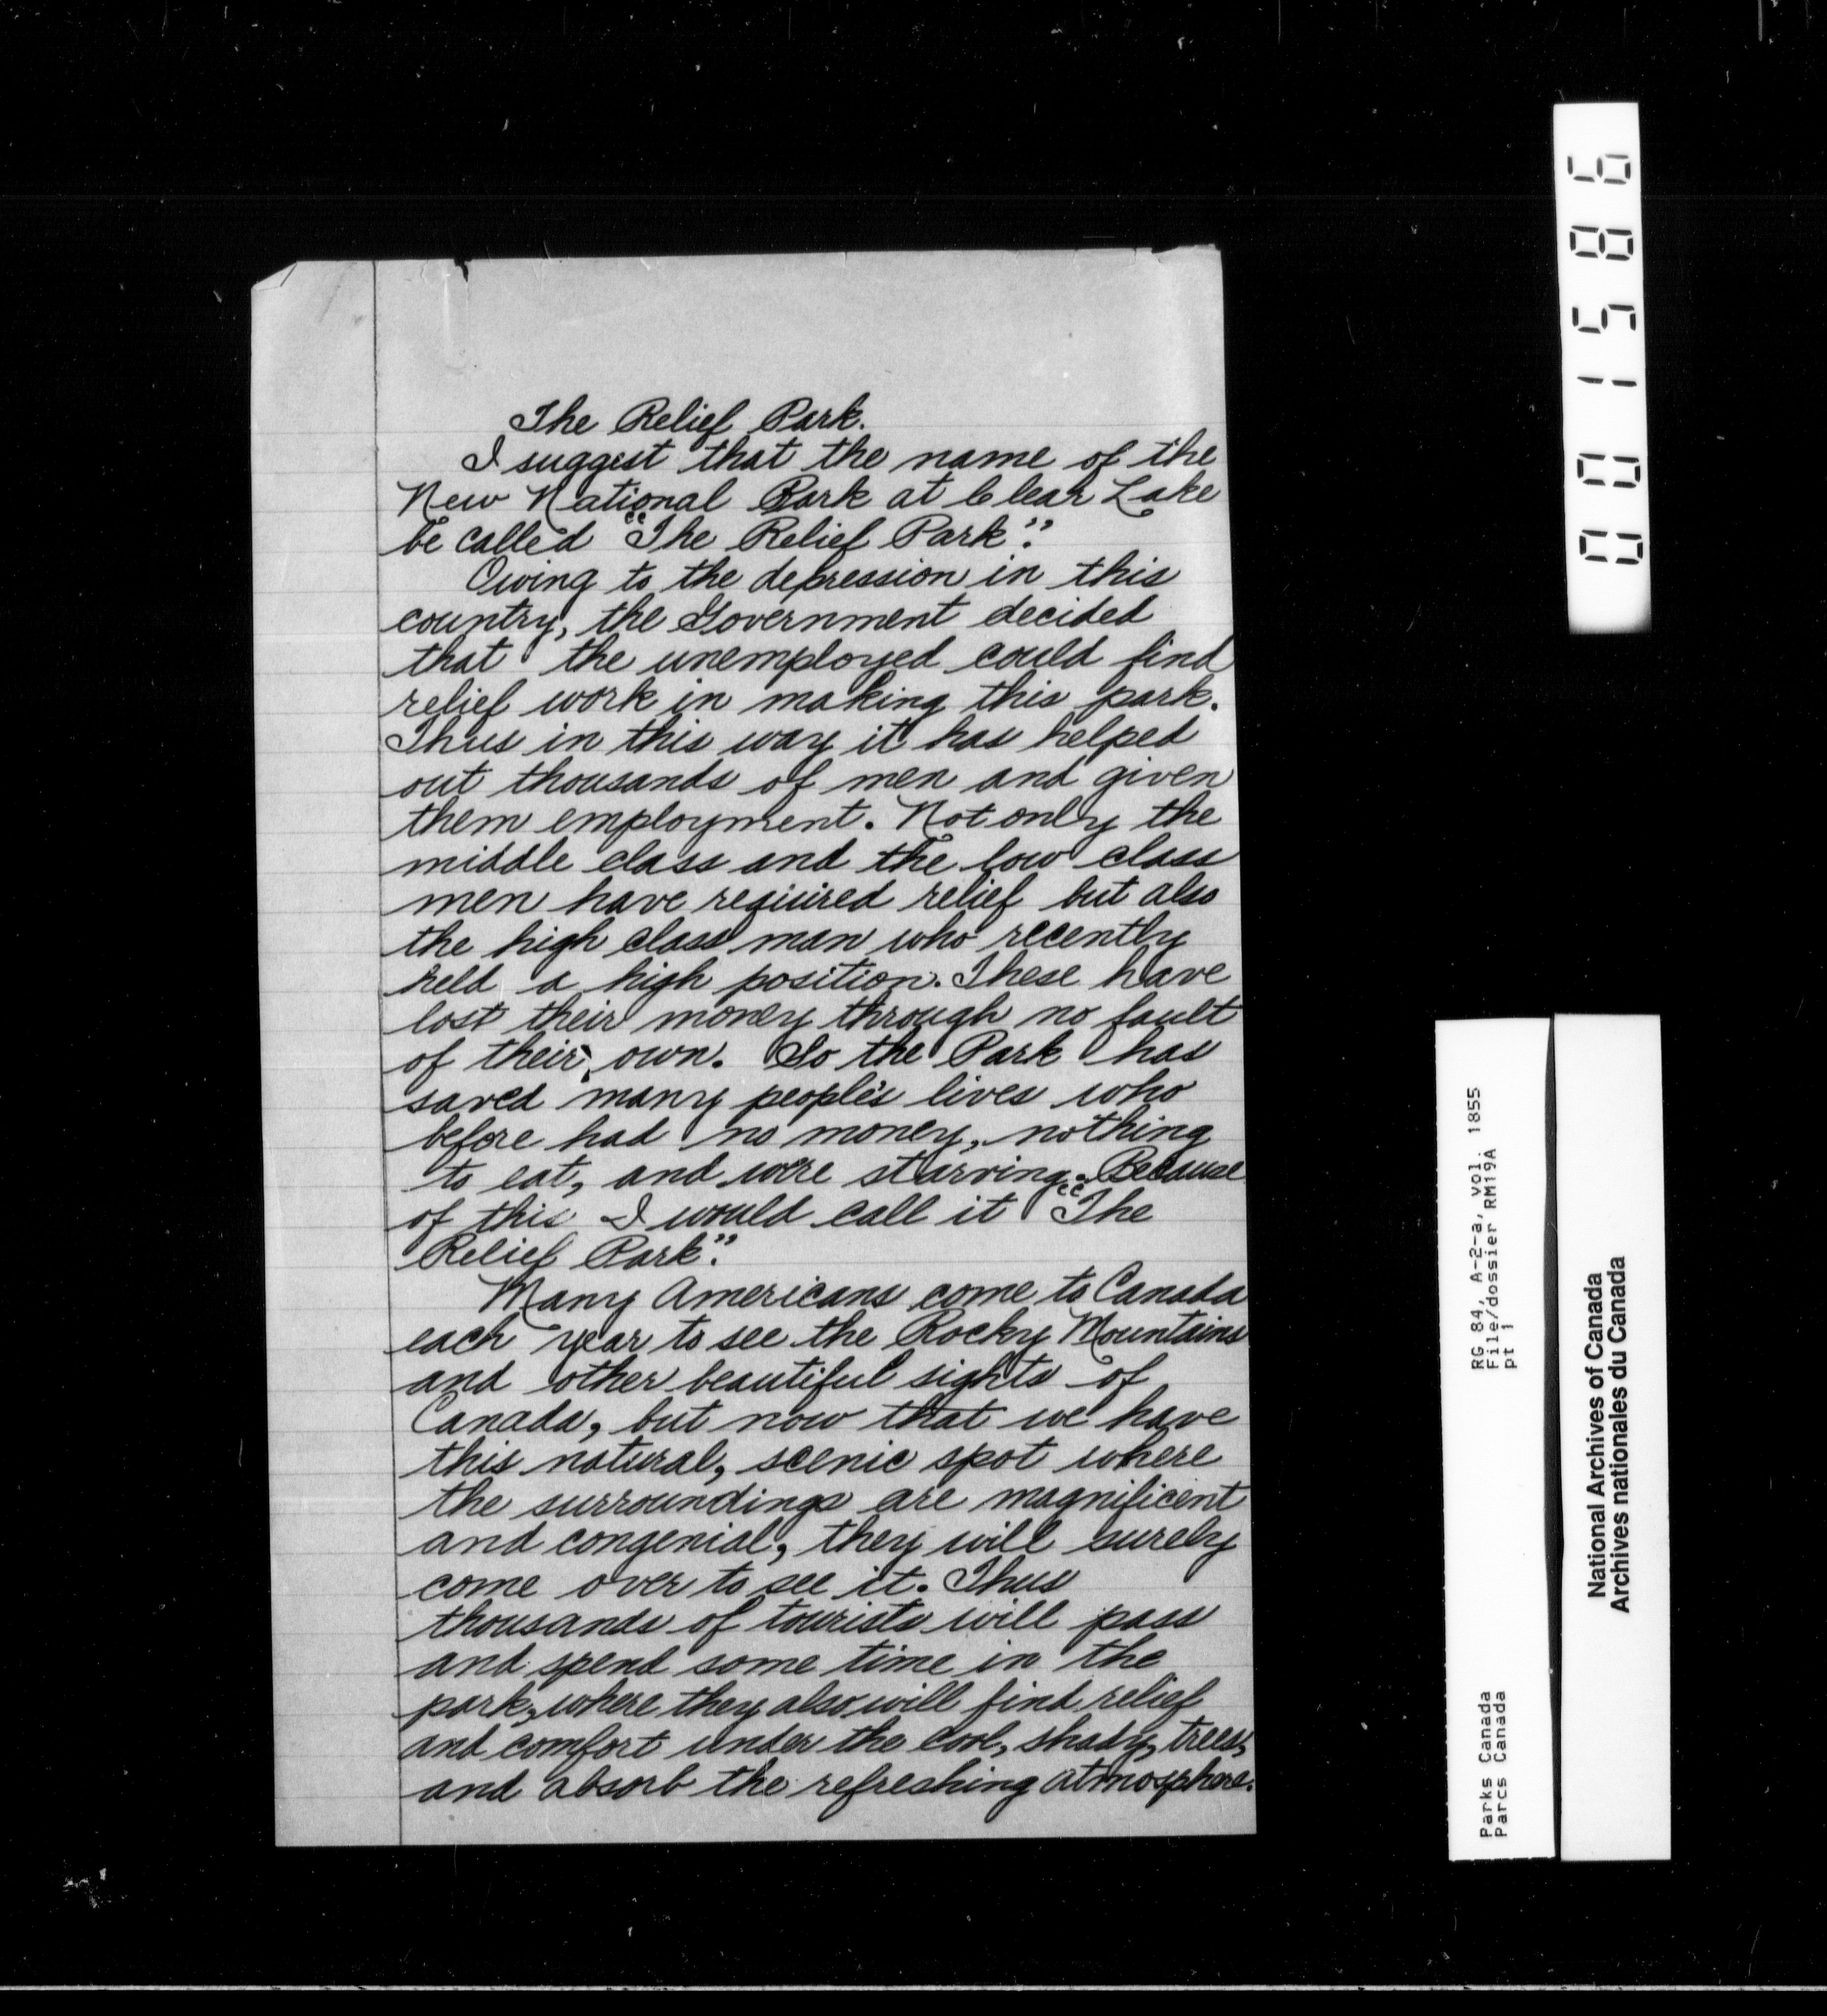 The Relief Park.
I suggest that the name of the
New National Park at Clear Lake
be called "The Relief Park".
Owing to the depression in this
country, the Government decided
that the unemployed could find
relief work in making this park.
Thus in this way it has helped
out thousands of men and given
them employment. Not only the
middle class and the low class
men have required relief but also
the high class man who recently
held a high position. These have
lost their money through no fault
of their own. So the Park has
saved many people's lives who
before had no money, nothing
to eat, and were starving. Because
of this I would call it "The
Relief Park".
Many Americans come to Canada
each year to see the Rocky Mountains
and other beautiful sights of
Canada, but now that we have
this natural, scenic spot where
the surroundings are magnificent
and congenial, they will surely
come over to see it. Thus
thousands of tourists will pass
and spend some time in the
park, where they also will find relief
and comfort under the cool, shady, trees,
and absorb the refreshing atmosphere.
001586
RG 84, A-2-a, vol. 1855
File/dossier RM19A
pt 1
Parks Canada
Parcs Canada
National Archives of Canada
Archives nationales du Canada